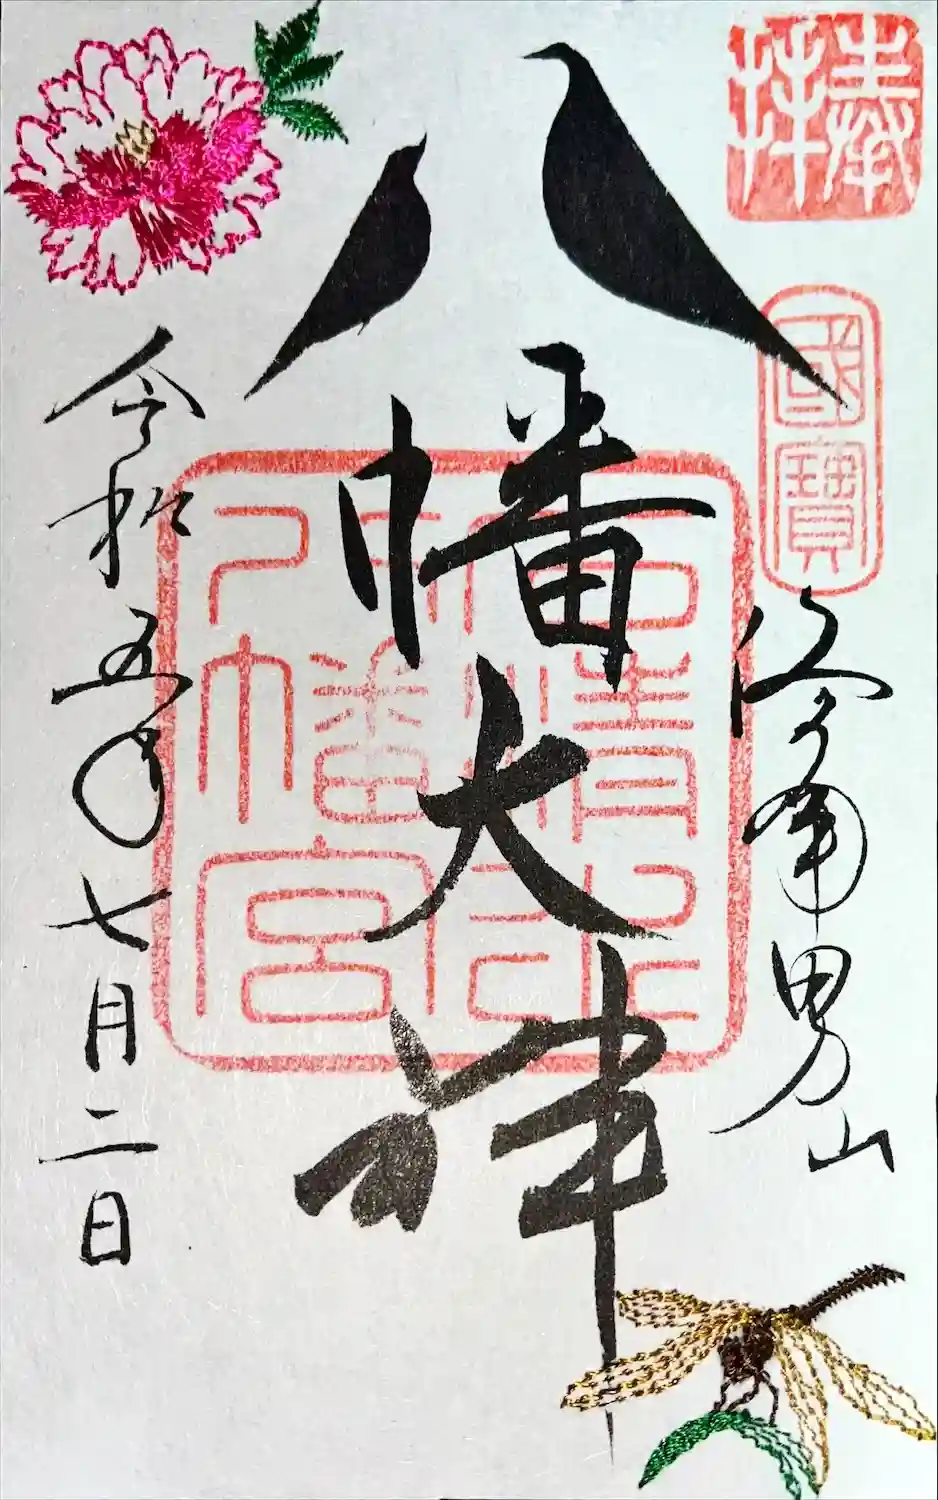 奉拝
國寶
男山
八幡大神
石清水
八幡宮
令和五年七月二日